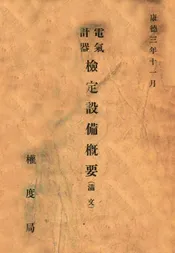 康德三年十一月
電氣計器
檢定設備概要(滿文)
權度局